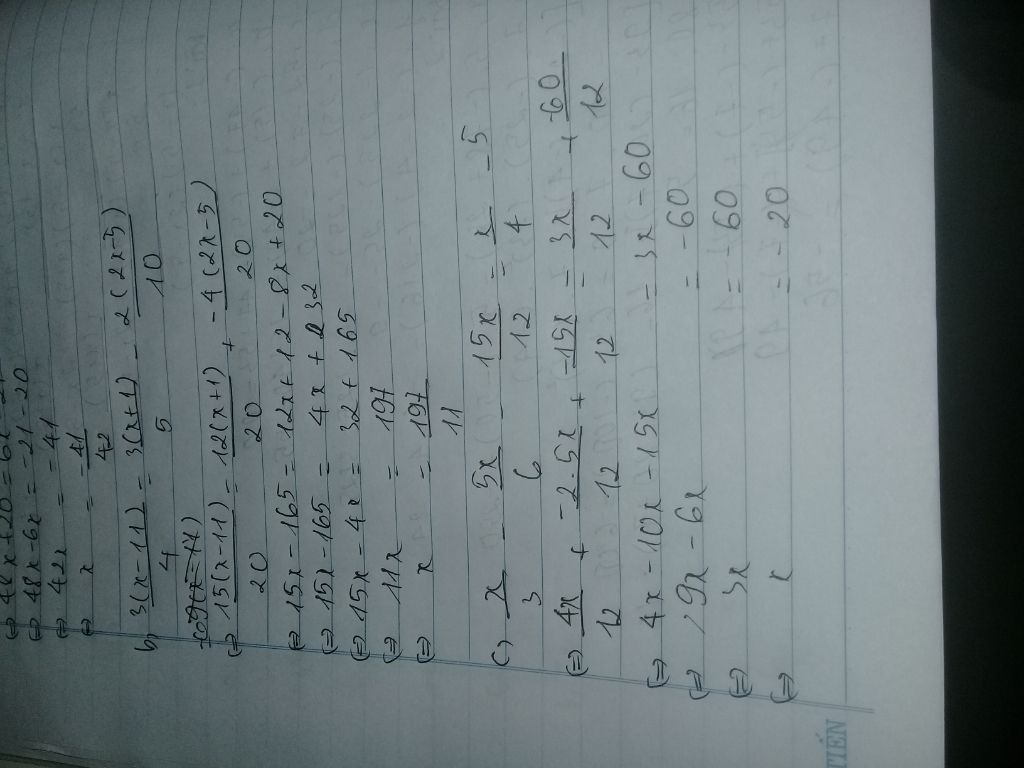 ⇔ 48x + 20 = 6x - 21
⇔ 48x - 6x = -21 - 20
⇔ 42x = -41
⇔ x = -41/42
b) 3(x-11)/4 = 3(x+1)/5 - 2(2x-5)/10
⇔ 15(x-11)/20 = 12(x+1)/20 + -4(2x-5)/20
⇔ 15x - 165 = 12x + 12 - 8x + 20
⇔ 15x - 165 = 4x + 32
⇔ 15x - 4x = 32 + 165
⇔ 11x = 197
⇔ x = 197/11
c) x/3 - 5x/6 - 15x/12 = x/4 - 5
⇔ 4x/12 + -2.5x/12 + -15x/12 = 3x/12 + -60/12
⇔ 4x - 10x - 15x = 3x - 60
⇔ 9x - 6x = -60
⇔ 3x = -60
⇔ x = -20
TIẾN